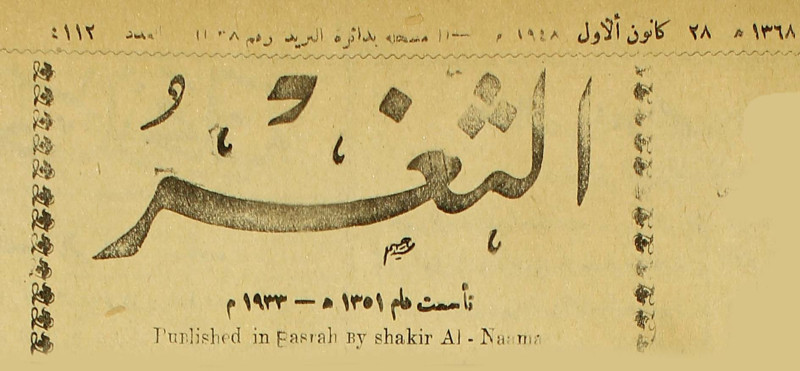 ١٣٦٨ ه ٢٨ كانون ألاول ١٩٤٨ م مسجلة بدائرة البريد رقم العدد ٤١١٢
الثغر
تأسست عام ١٣٥١ ه — ١٩٣٣ م
Published in Basrah By shakir Al - Naama